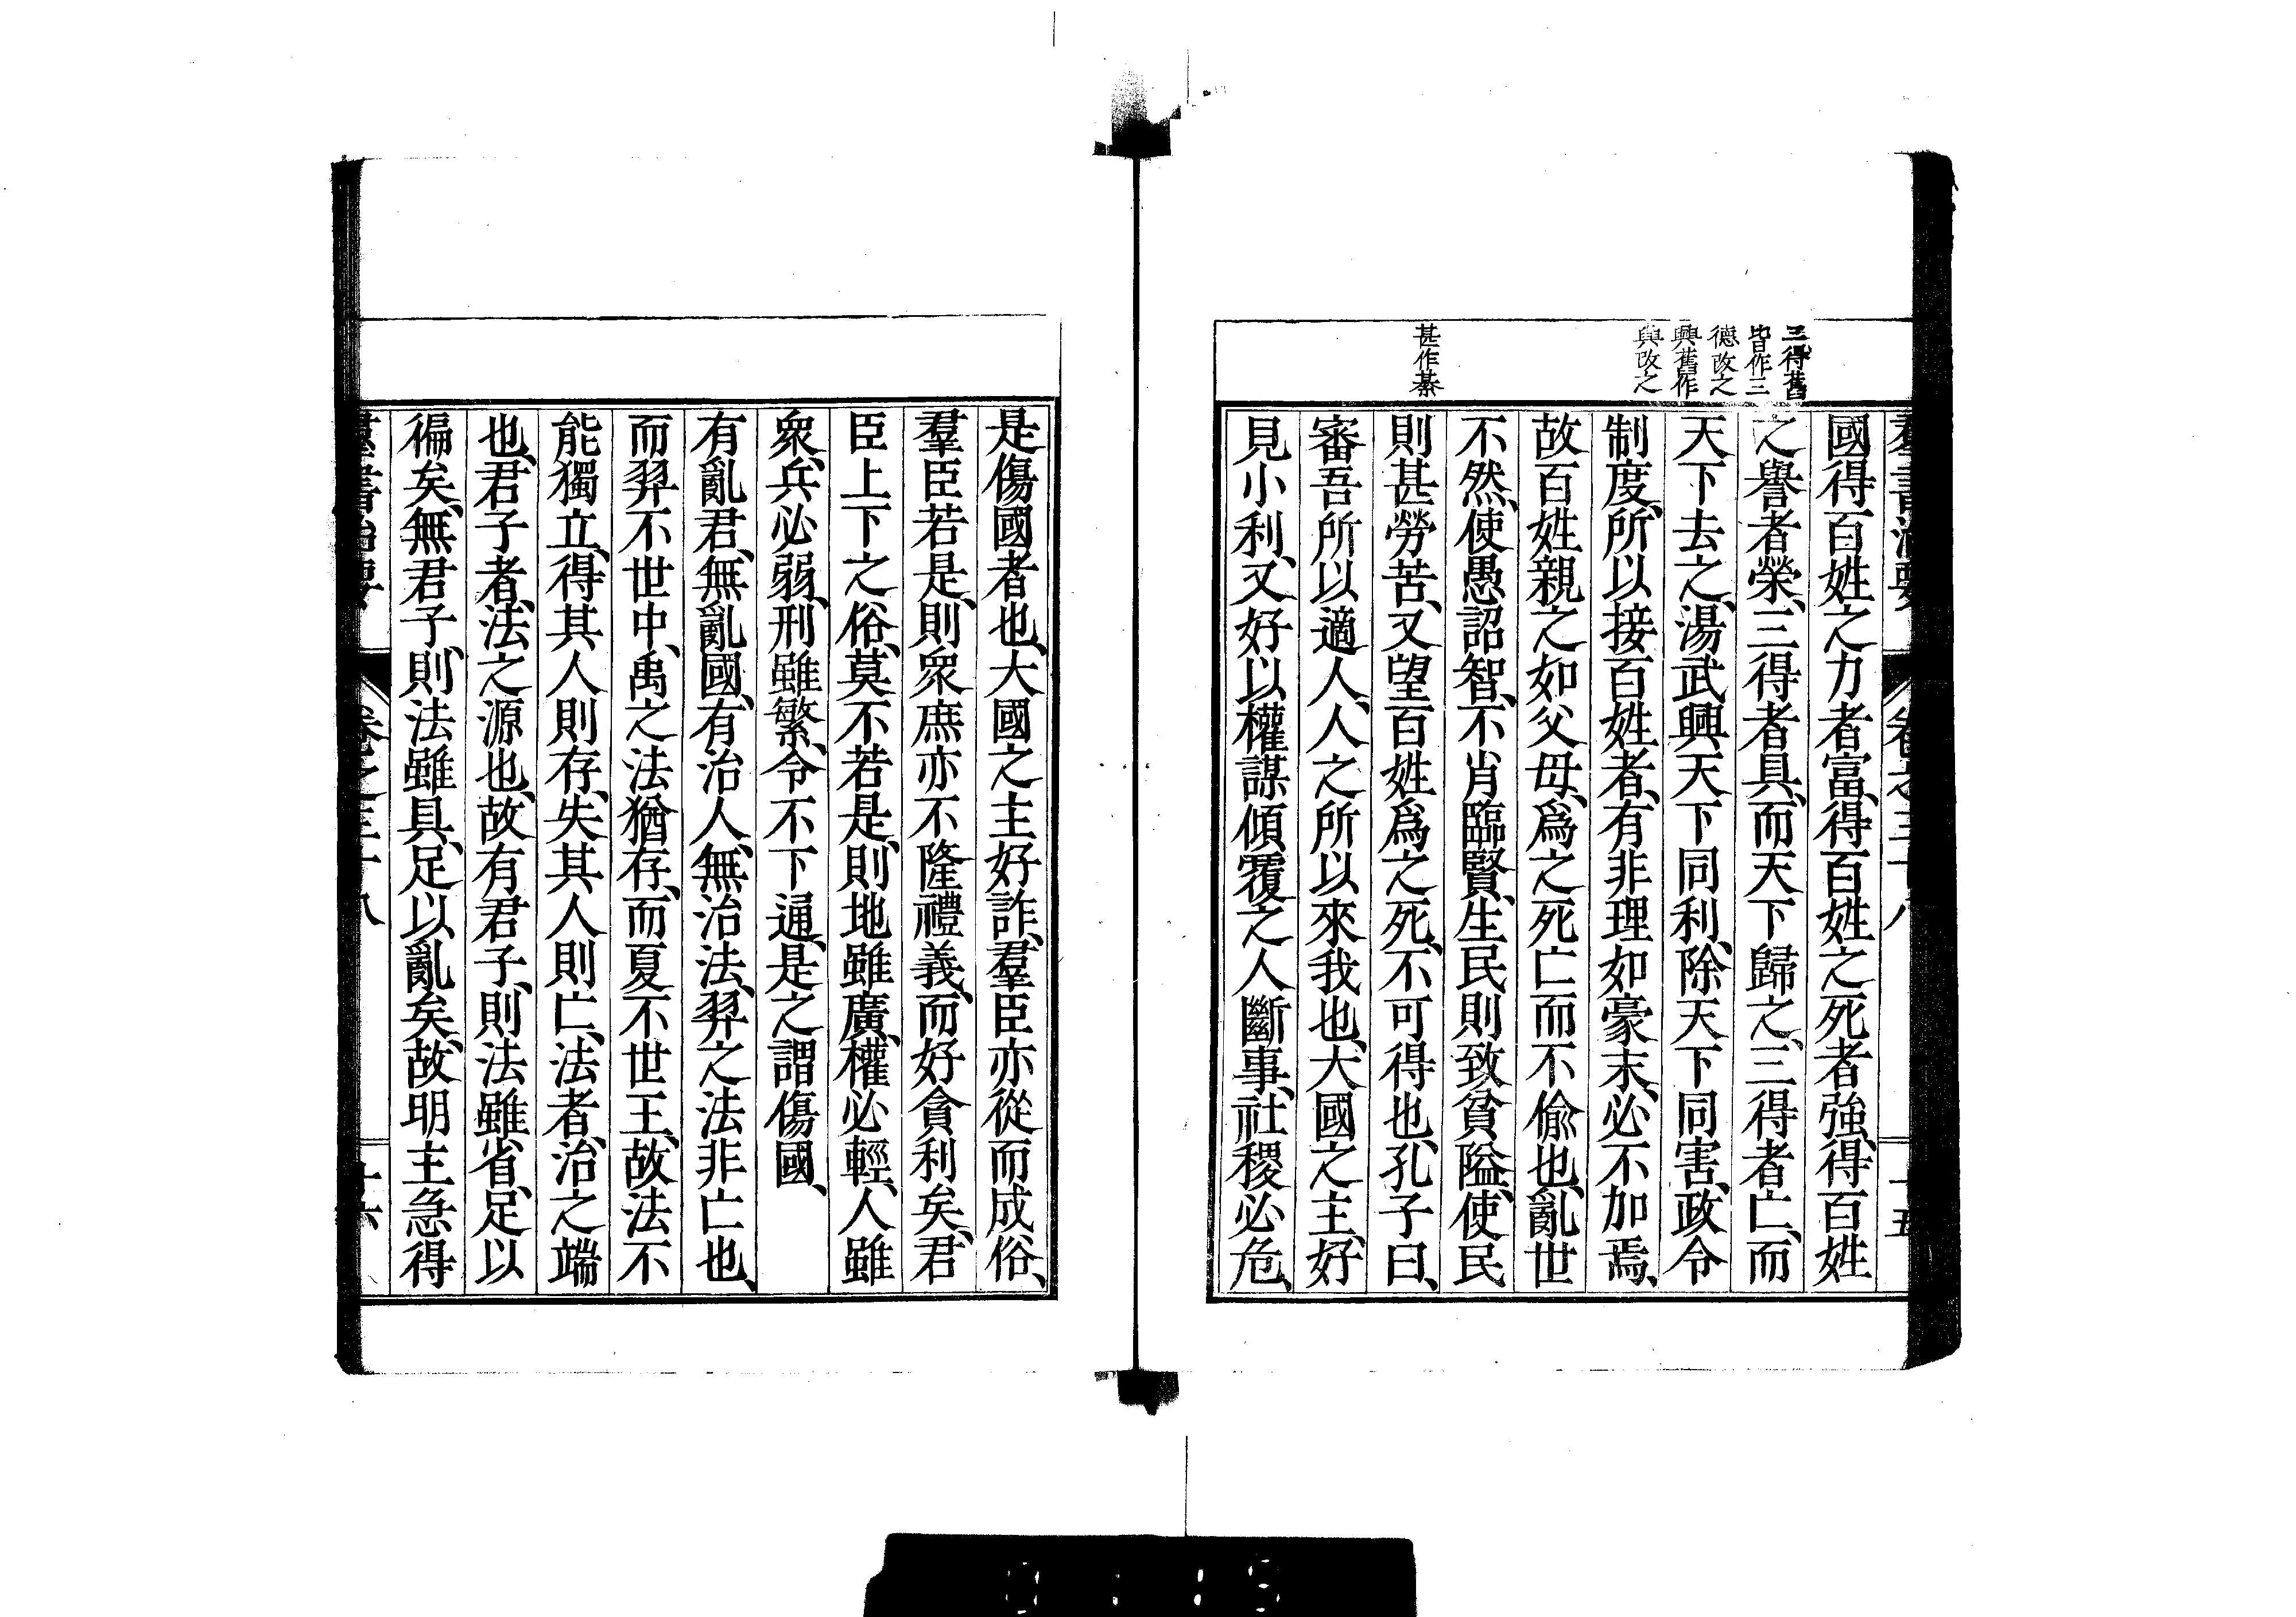 三得舊
皆作三
德改之
興舊作
與改之
甚作綦
羣書治要 卷之三十八 十五
國得百姓之力者富、得百姓之死者強、得百姓
之譽者榮、三得者具、而天下歸之、三得者亡、而
天下去之、湯武興天下同利、除天下同害、政令
制度、所以接百姓者、有非理如豪末、必不加焉、
故百姓親之如父母、爲之死亡而不偷也、亂世
不然、使愚詔智、不肖臨賢、生民則致貧隘、使民
則甚勞苦、又望百姓爲之死、不可得也、孔子曰、
審吾所以適人、人之所以來我也、大國之主、好
見小利、又好以權謀傾覆之人斷事、社稷必危、
是傷國者也、大國之主好詐、羣臣亦從而成俗、
羣臣若是、則衆庶亦不隆禮義、而好貪利矣、君
臣上下之俗、莫不若是、則地雖廣、權必輕、人雖
衆、兵必弱、刑雖繁、令不下通、是之謂傷國、
有亂君、無亂國、有治人、無治法、羿之法非亡也、
而羿不世中、禹之法猶存、而夏不世王、故法不
能獨立、得其人則存、失其人則亡、法者、治之端
也、君子者、法之源也、故有君子、則法雖省、足以
徧矣、無君子、則法雖具、足以亂矣、故明主急得
羣書治要 卷之三十八 十六